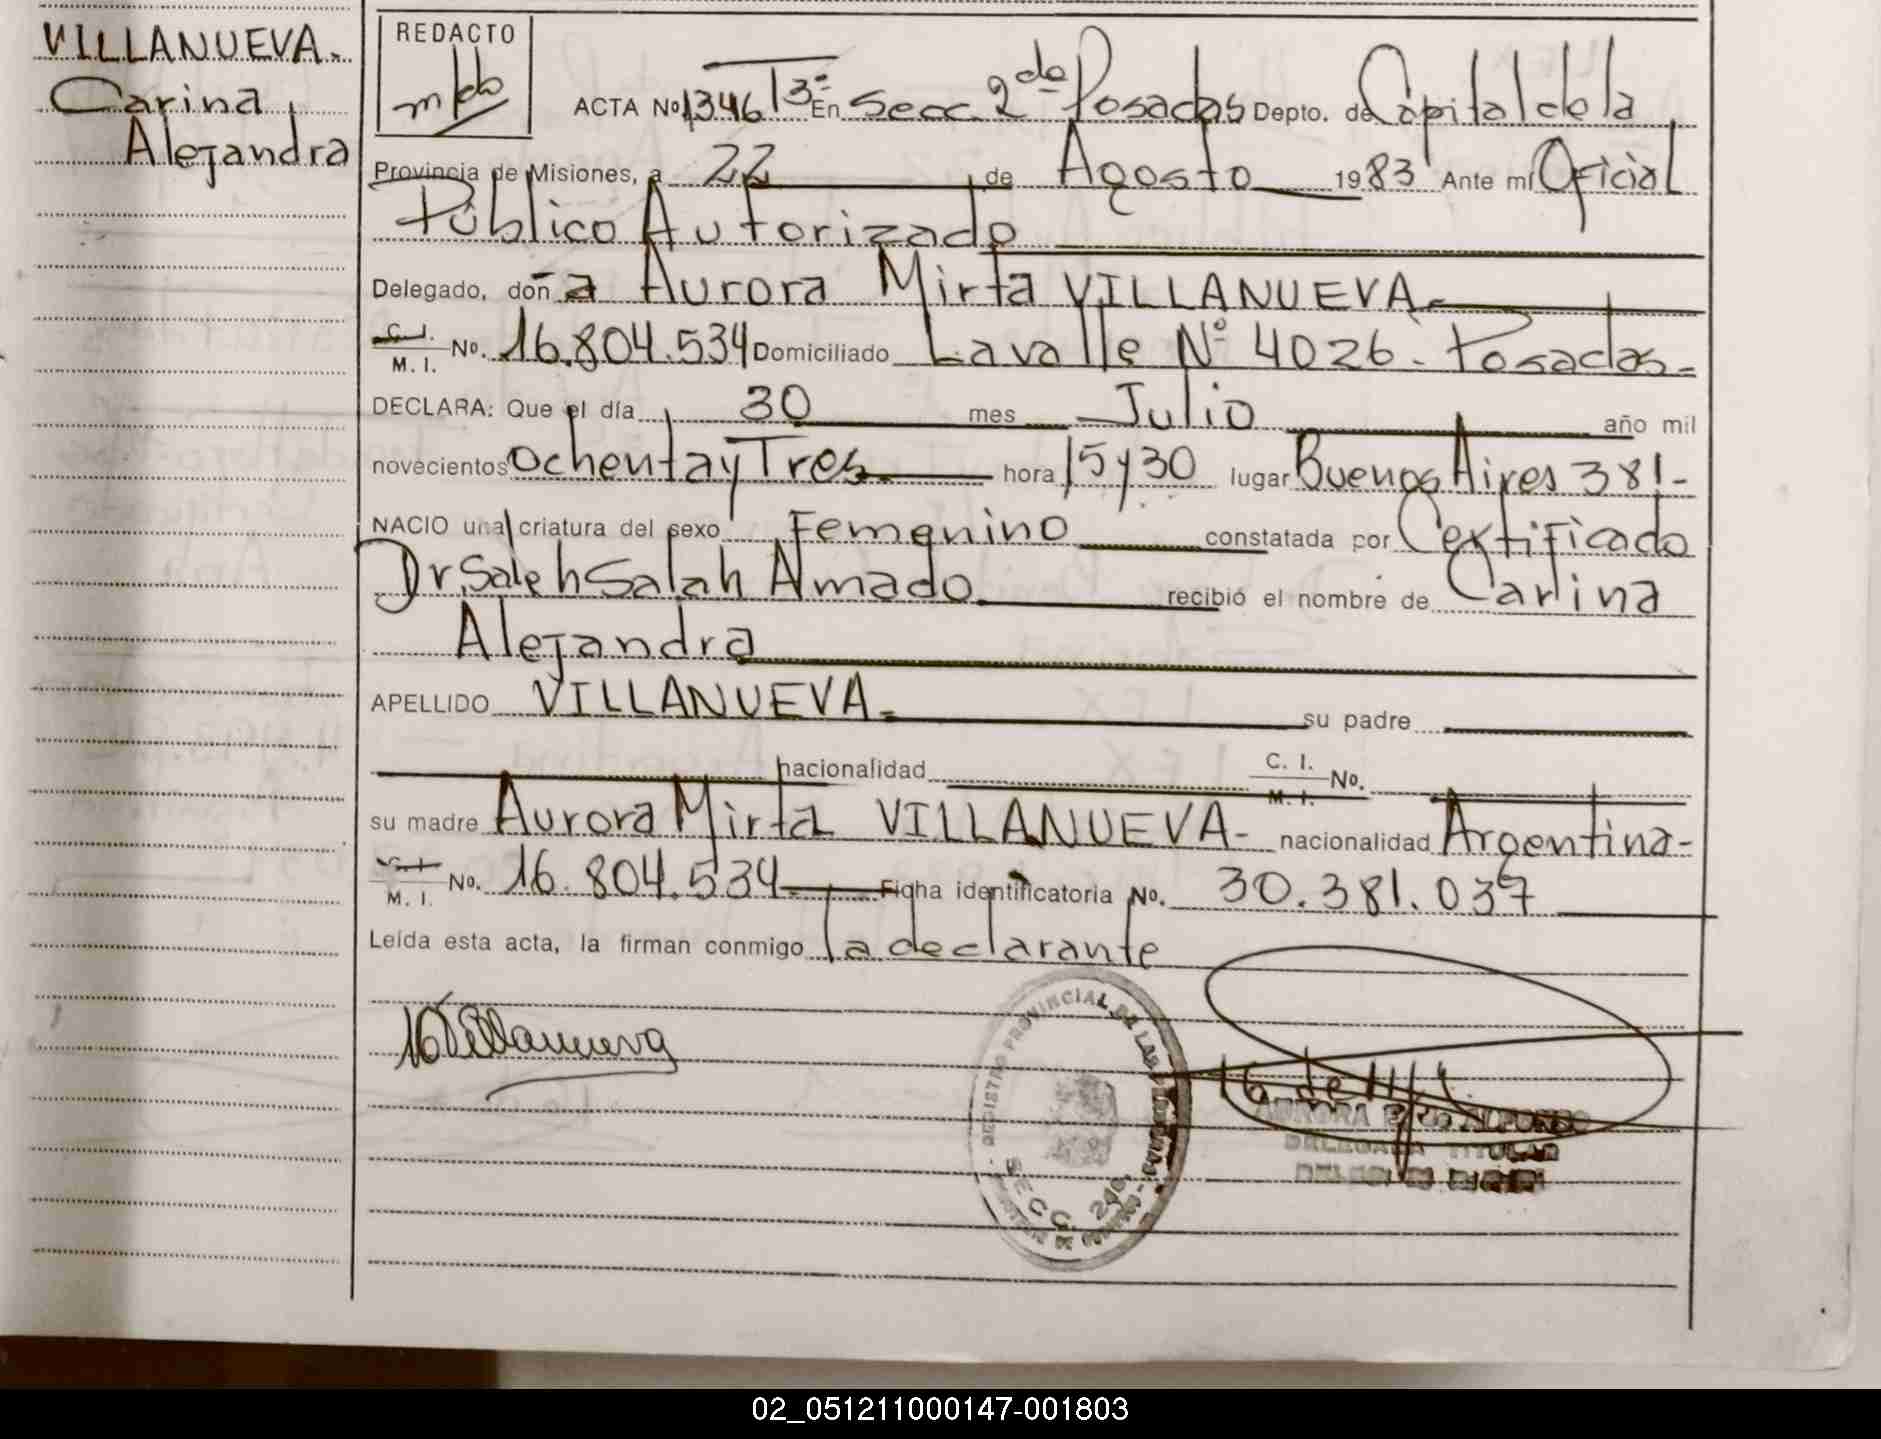 VILLANUEVA.-
Carina
Alejandra
REDACTO
ACTA No 1346 T3º En Secc. 2da Posadas Depto. de Capital de la
Provincia de Misiones, a 22 de Agosto 1983 Ante mí Oficial
Público Autorizado
Delegado, doña Aurora Mirta VILLANUEVA.-
C. I.
M. I. No. 16.804.534 Domiciliado Lavalle Nº 4026. Posadas.-
DECLARA: Que el día 30 mes Julio año mil
novecientos ochenta y Tres hora 15 y 30 lugar Buenos Aires 381-
NACIO una criatura del sexo Femenino constatada por Certificado
Dr. Saleh Salah Amado recibió el nombre de Carina
Alejandra
APELLIDO VILLANUEVA.- su padre
nacionalidad C. I.
M. I. No.
su madre Aurora Mirta VILLANUEVA- nacionalidad Argentina-
M. I. No. 16.804.534 Ficha identificatoria No. 30.381.037
Leída esta acta, la firman conmigo la declarante
Villanueva
REGISTRO PROVINCIAL DE LAS
SECC. 2da.
DELEGADA TITULAR
02_051211000147-001803